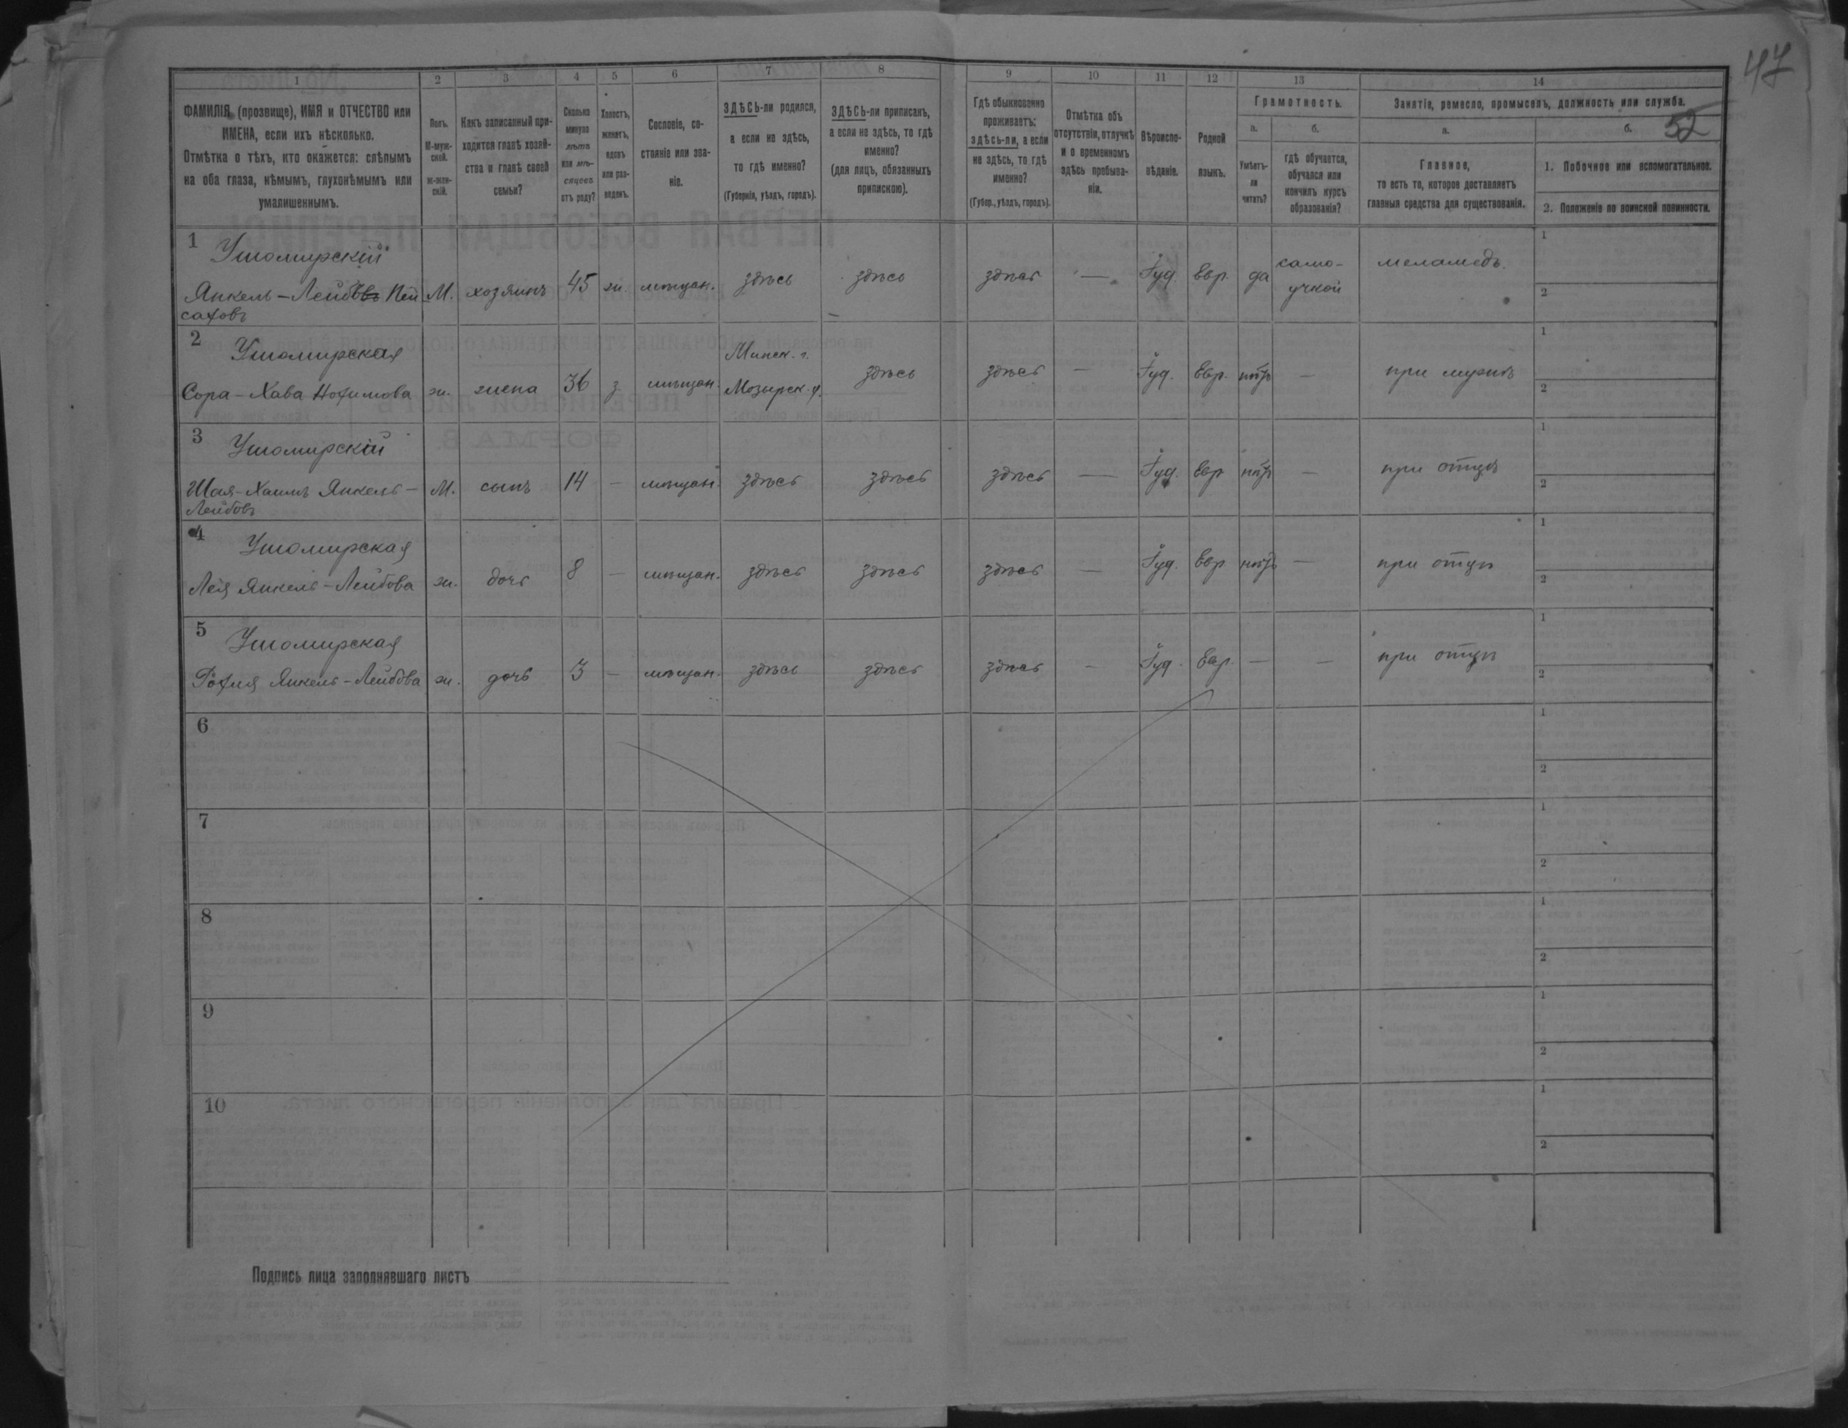 47
52
1 2 3 4 5 6 7 8 9 10 11 12 13 14
ФАМИЛІЯ, (прозвище), ИМЯ и ОТЧЕСТВО или
ИМЕНА, если ихъ нѣсколько.
Отмѣтка о тѣхъ, кто окажется: слѣпымъ
на оба глаза, нѣмымъ, глухонѣмымъ или
умалишеннымъ.
Полъ.
М-муж-
ской.
ж-жен-
скій.
Какъ записанный при-
ходится главѣ хозяй-
ства и главѣ своей
семьи?
Сколько
минуло
лѣтъ
или мѣ-
сяцевъ
отъ роду?
Холостъ,
женатъ,
вдовъ
или раз-
веденъ.
Сословіе, со-
стояніе или зва-
ніе.
ЗДѢСЬ-ли родился,
а если не здѣсь,
то гдѣ именно?
(Губернія, уѣздъ, городъ).
ЗДѢСЬ-ли приписанъ,
а если не здѣсь, то гдѣ
именно?
(для лицъ, обязанныхъ
припискою).
Гдѣ обыкновенно
проживаетъ:
здѣсь-ли, а если
не здѣсь, то гдѣ
именно?
(Губер., уѣздъ, городъ).
Отмѣтка объ
отсутствіи, отлучкѣ
и о временномъ
здѣсь пребыва-
ніи.
Вѣроиспо-
вѣданіе.
Родной
языкъ.
Грамотность.
а.
Умѣетъ-
ли
читать?
б.
гдѣ обучается,
обучался или
кончилъ курсъ
образованія?
Занятіе, ремесло, промыселъ, должность или служба.
а.
Главное,
то есть то, которое доставляетъ
главныя средства для существованія.
б.
1. Побочное или вспомогательное.
2. Положеніе по воинской повинности.
1 Ушомирскій
Янкель-Лейбовъ Пей
саховъ
М. хозяинъ 45 ж. мѣщан. здѣсь здѣсь здѣсь — Іуд. Евр. да само-
учкой
меламедъ.
1
2
2 Ушомирская
Сора-Хава Нохимова
ж. жена 36 з. мѣщан. Минск. г.
Мозырск. у.
здѣсь здѣсь — Іуд. Евр. нѣтъ — при мужѣ
1
2
3 Ушомирскій
Шая-Хаимъ Янкель-
Лейбовъ
М. сынъ 14 — мѣщан. здѣсь здѣсь здѣсь — Іуд. Евр. нѣтъ — при отцѣ
1
2
4 Ушомирская
Лея Янкель-Лейбова
ж. дочь 8 — мѣщан. здѣсь здѣсь здѣсь — Іуд. Евр. нѣтъ — при отцѣ
1
2
5 Ушомирская
Рохля Янкель-Лейбова
ж. дочь 3 — мѣщан. здѣсь здѣсь здѣсь — Іуд. Евр. — — при отцѣ
1
2
6
1
2
7
1
2
8
1
2
9
1
2
10
1
2
Подпись лица заполнявшаго листъ